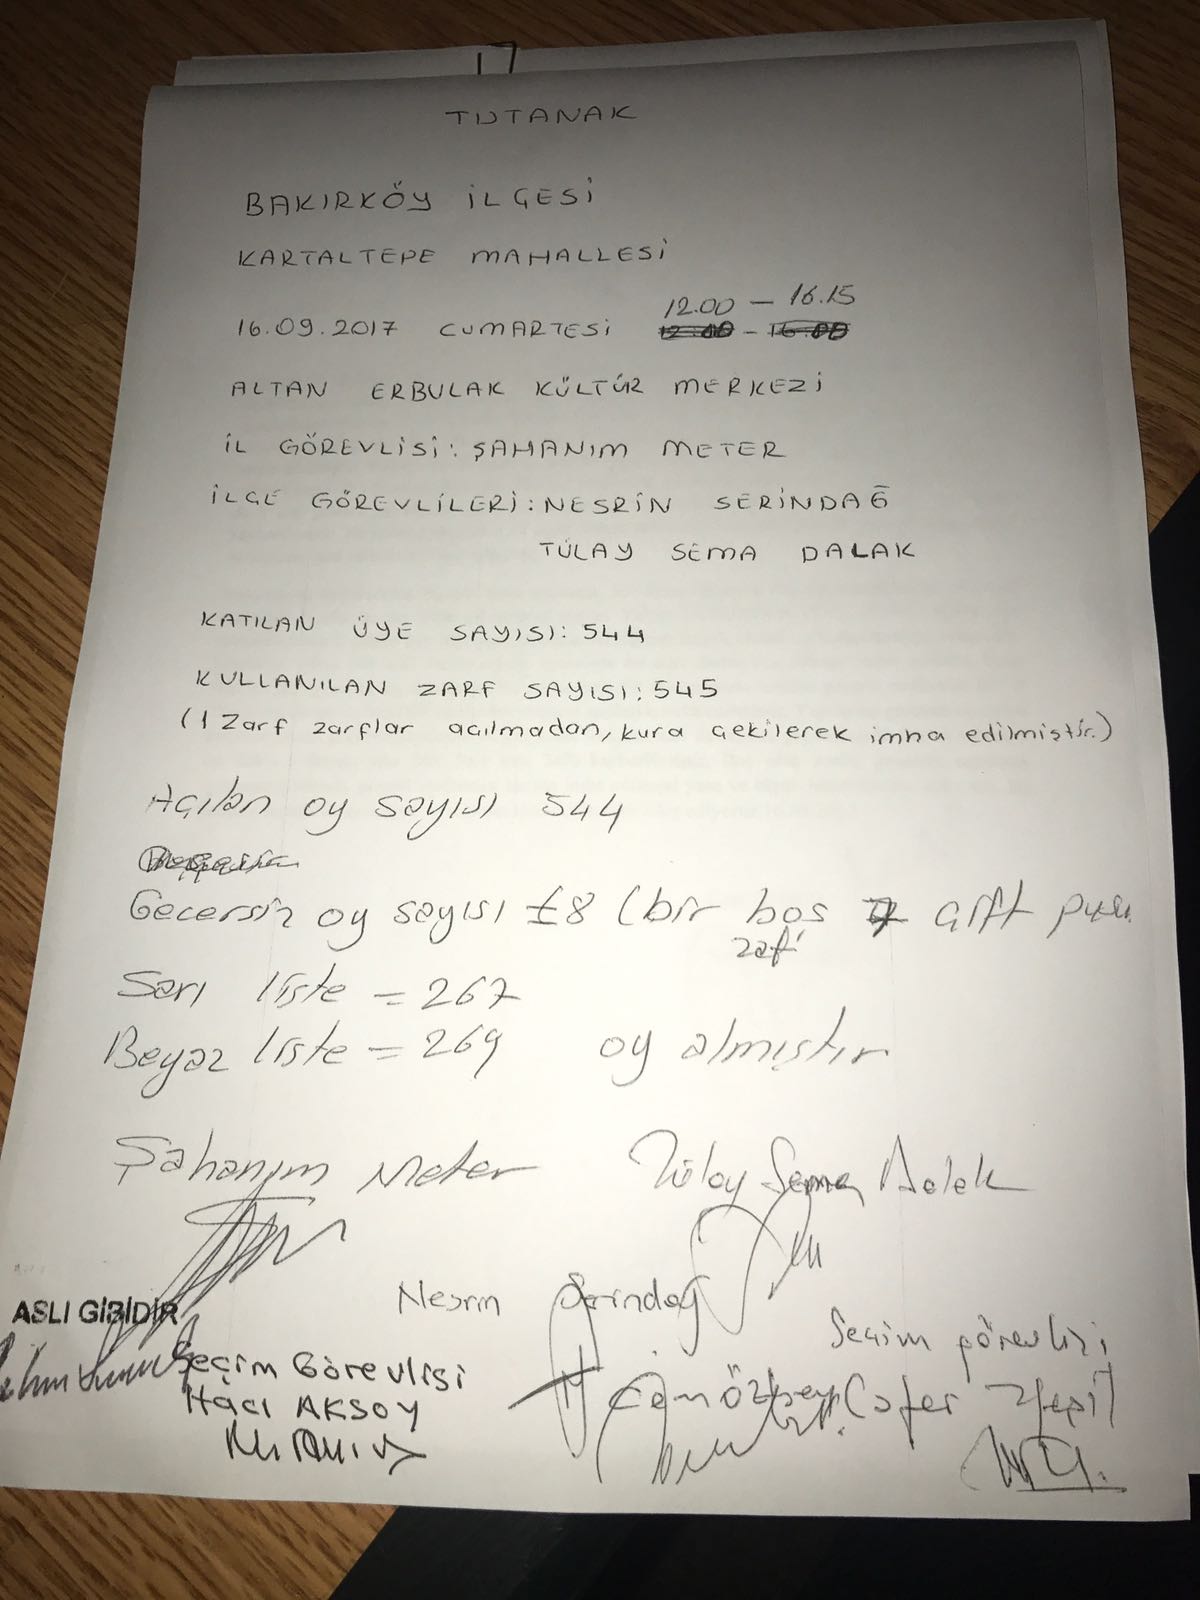 TUTANAK
BAKIRKÖY İLÇESİ
KARTALTEPE MAHALLESİ
12.00 – 16.15
16.09.2017 CUMARTESİ 12.00 - 16.00
ALTAN ERBULAK KÜLTÜR MERKEZİ
İL GÖREVLİSİ: ŞAHANIM METER
İLÇE GÖREVLİLERİ: NESRİN SERİNDAĞ
TÜLAY SEMA DALAK
KATILAN ÜYE SAYISI: 544
KULLANILAN ZARF SAYISI: 545
(1 Zarf zarflar açılmadan, kura çekilerek imha edilmiştir.)
Açılan oy sayısı 544
Geçersiz oy sayısı 8 (bir boş 7 çift pusu
zarf
Sarı liste = 267
Beyaz liste = 269 oy almıştır
Şahanım Meter Tülay Sema Dalak
Nesrin Serindağ
ASLI GİBİDİR
Seçim görevlisi
Seçim Görevlisi
Cem Özbey
Hacı AKSOY